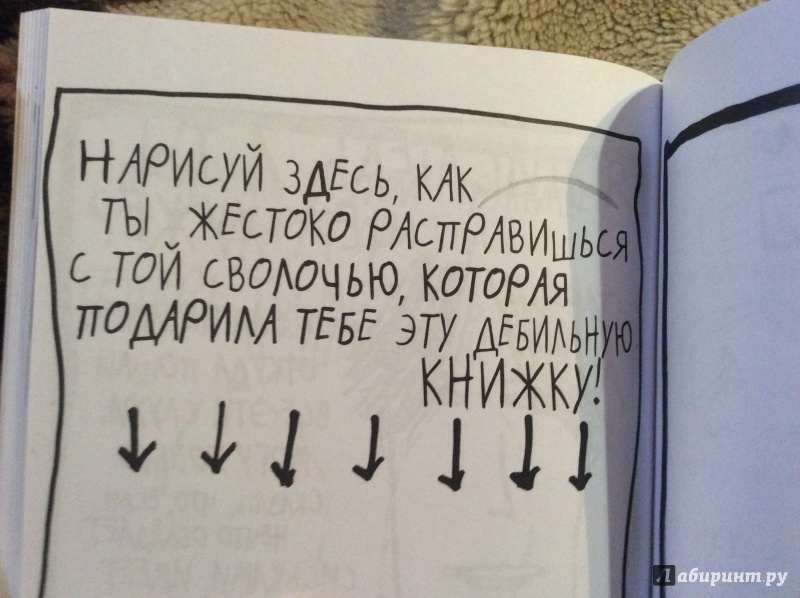 НАРИСУЙ ЗДЕСЬ, КАК
ТЫ ЖЕСТОКО РАСПРАВИШЬСЯ
С ТОЙ СВОЛОЧЬЮ, КОТОРАЯ
ПОДАРИЛА ТЕБЕ ЭТУ ДЕБИЛЬНУЮ
КНИЖКУ!
Лабиринт.ру